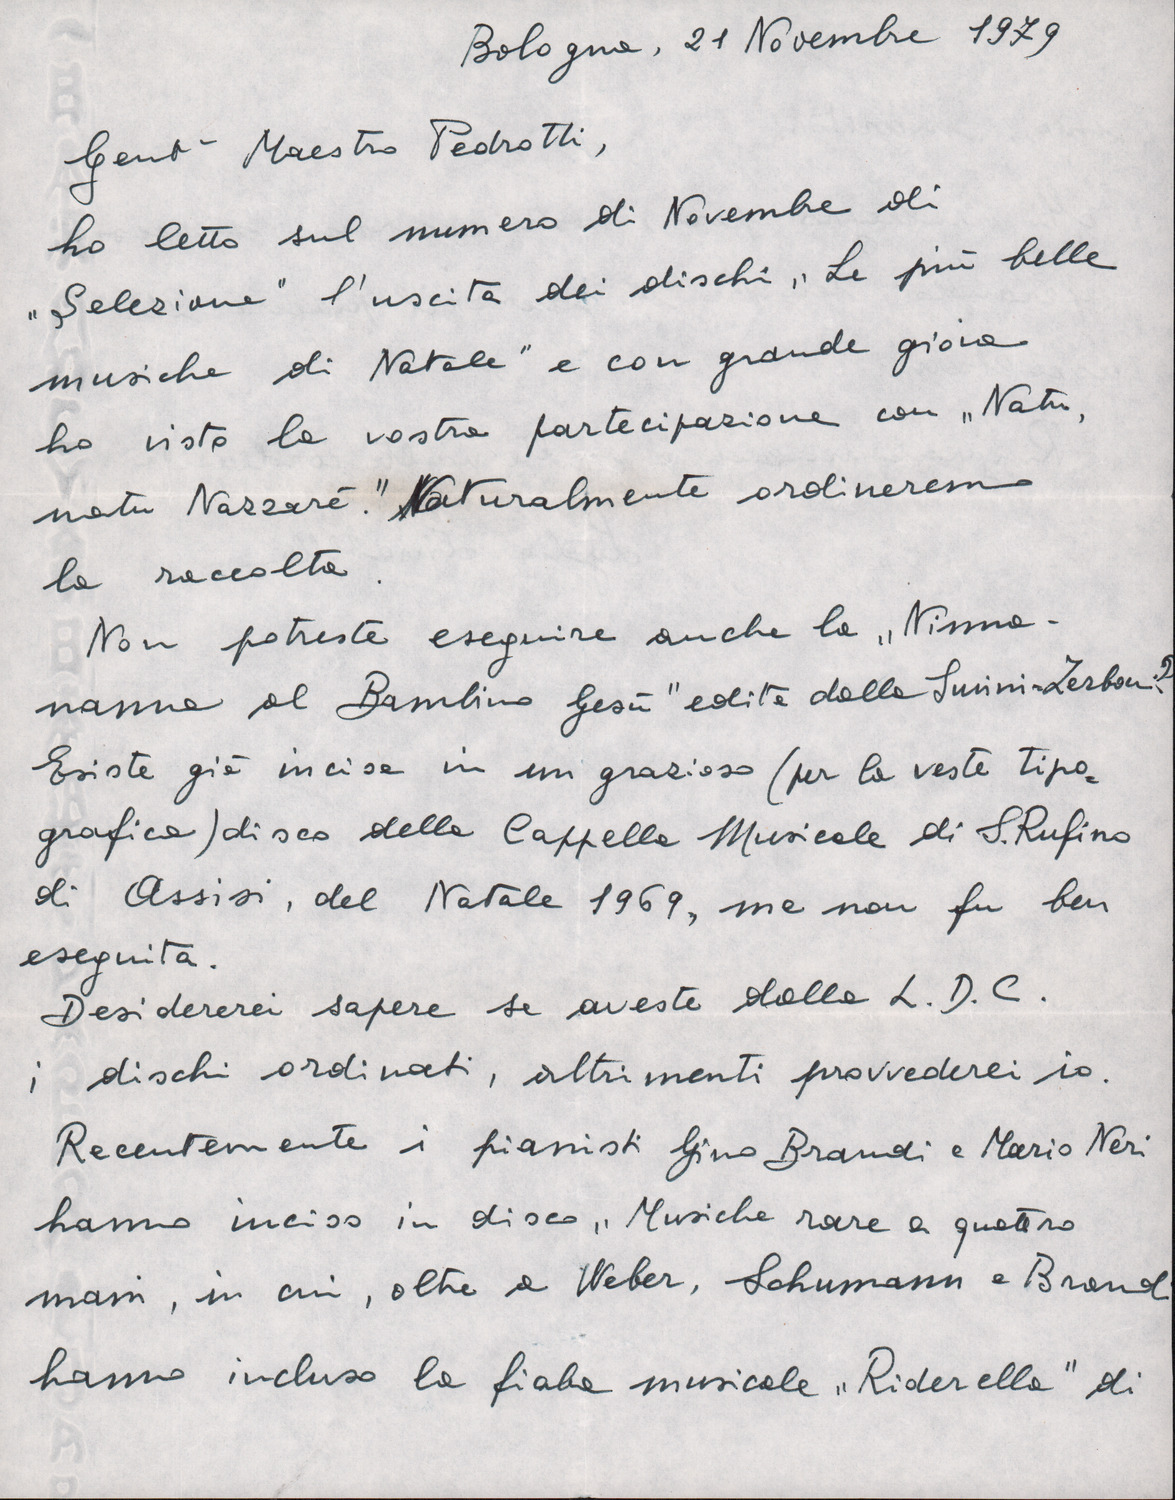 Bologna, 21 Novembre 1979
Gent- Maestro Pedrotti,
ho letto sul numero di Novembre di
„Selezione" l'uscita dei dischi „Le più belle
musiche di Natale" e con grande gioia
ho visto la vostra partecipazione con „Natu,
natu Nazzaré." Naturalmente ordineremo
la raccolta.
Non potreste eseguire anche la „Ninna-
nanna al Bambino Gesù" edita dalla Suvini-Zerboni?
Esiste già incisa in un grazioso (per la veste tipo=
grafica) disco della Cappella Musicale di S. Rufino
di Assisi, del Natale 1969, ma non fu ben
eseguita.
Desidererei sapere se aveste dalla L. D. C.
i dischi ordinati, altrimenti provvederei io.
Recentemente i pianisti Gino Brandi e Mario Neri
hanno inciso in disco „Musiche rare a quattro
mani, in cui, oltre a Weber, Schumann e Brand
hanno incluso la fiaba musicale „Riderella" di